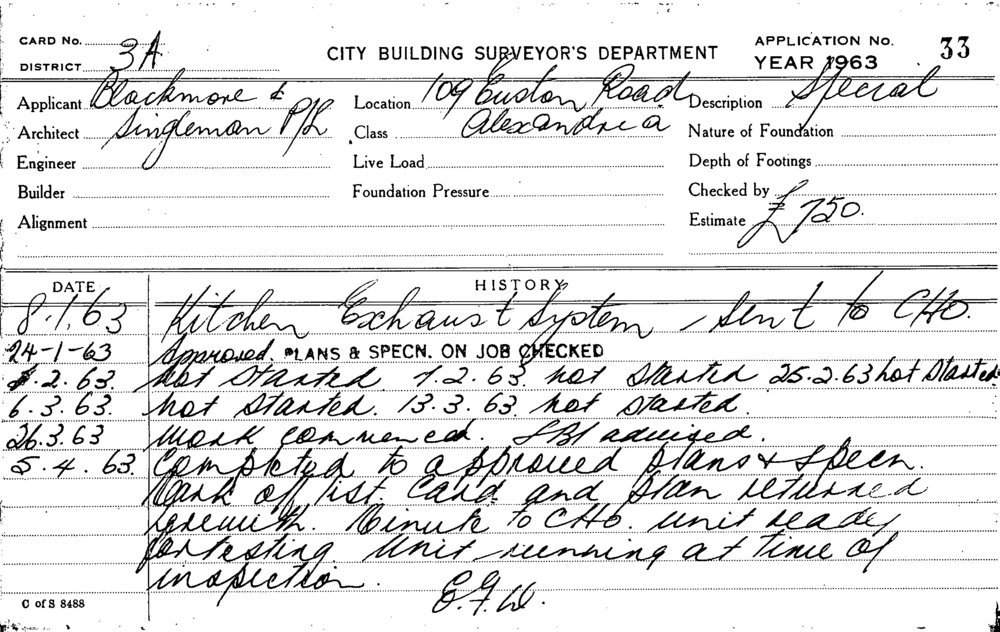 CARD No.
DISTRICT 3A
CITY BUILDING SURVEYOR'S DEPARTMENT
APPLICATION No. 33
YEAR 1963
Applicant Blackmore &
Location 109 Euston Road
Description Special
Architect Singleman P/L
Class Alexandria
Nature of Foundation
Engineer
Live Load
Depth of Footings
Builder
Foundation Pressure
Checked by
Alignment
Estimate £750.
DATE HISTORY
8.1.63 Kitchen Exhaust System - sent to CHO.
24-1-63 Approved. PLANS & SPECN. ON JOB CHECKED
.2.63. not started 7.2.63. not started 25.2.63 not started
6.3.63. not started. 13.3.63. not started.
26.3.63 work commenced. SBI advised.
5.4.63. Completed to approved plans & specn.
Mark off list. Card and plan returned
herewith. Minute to CHO. unit ready
for testing. Unit running at time of
inspection. E.F.W.
C of S 8488